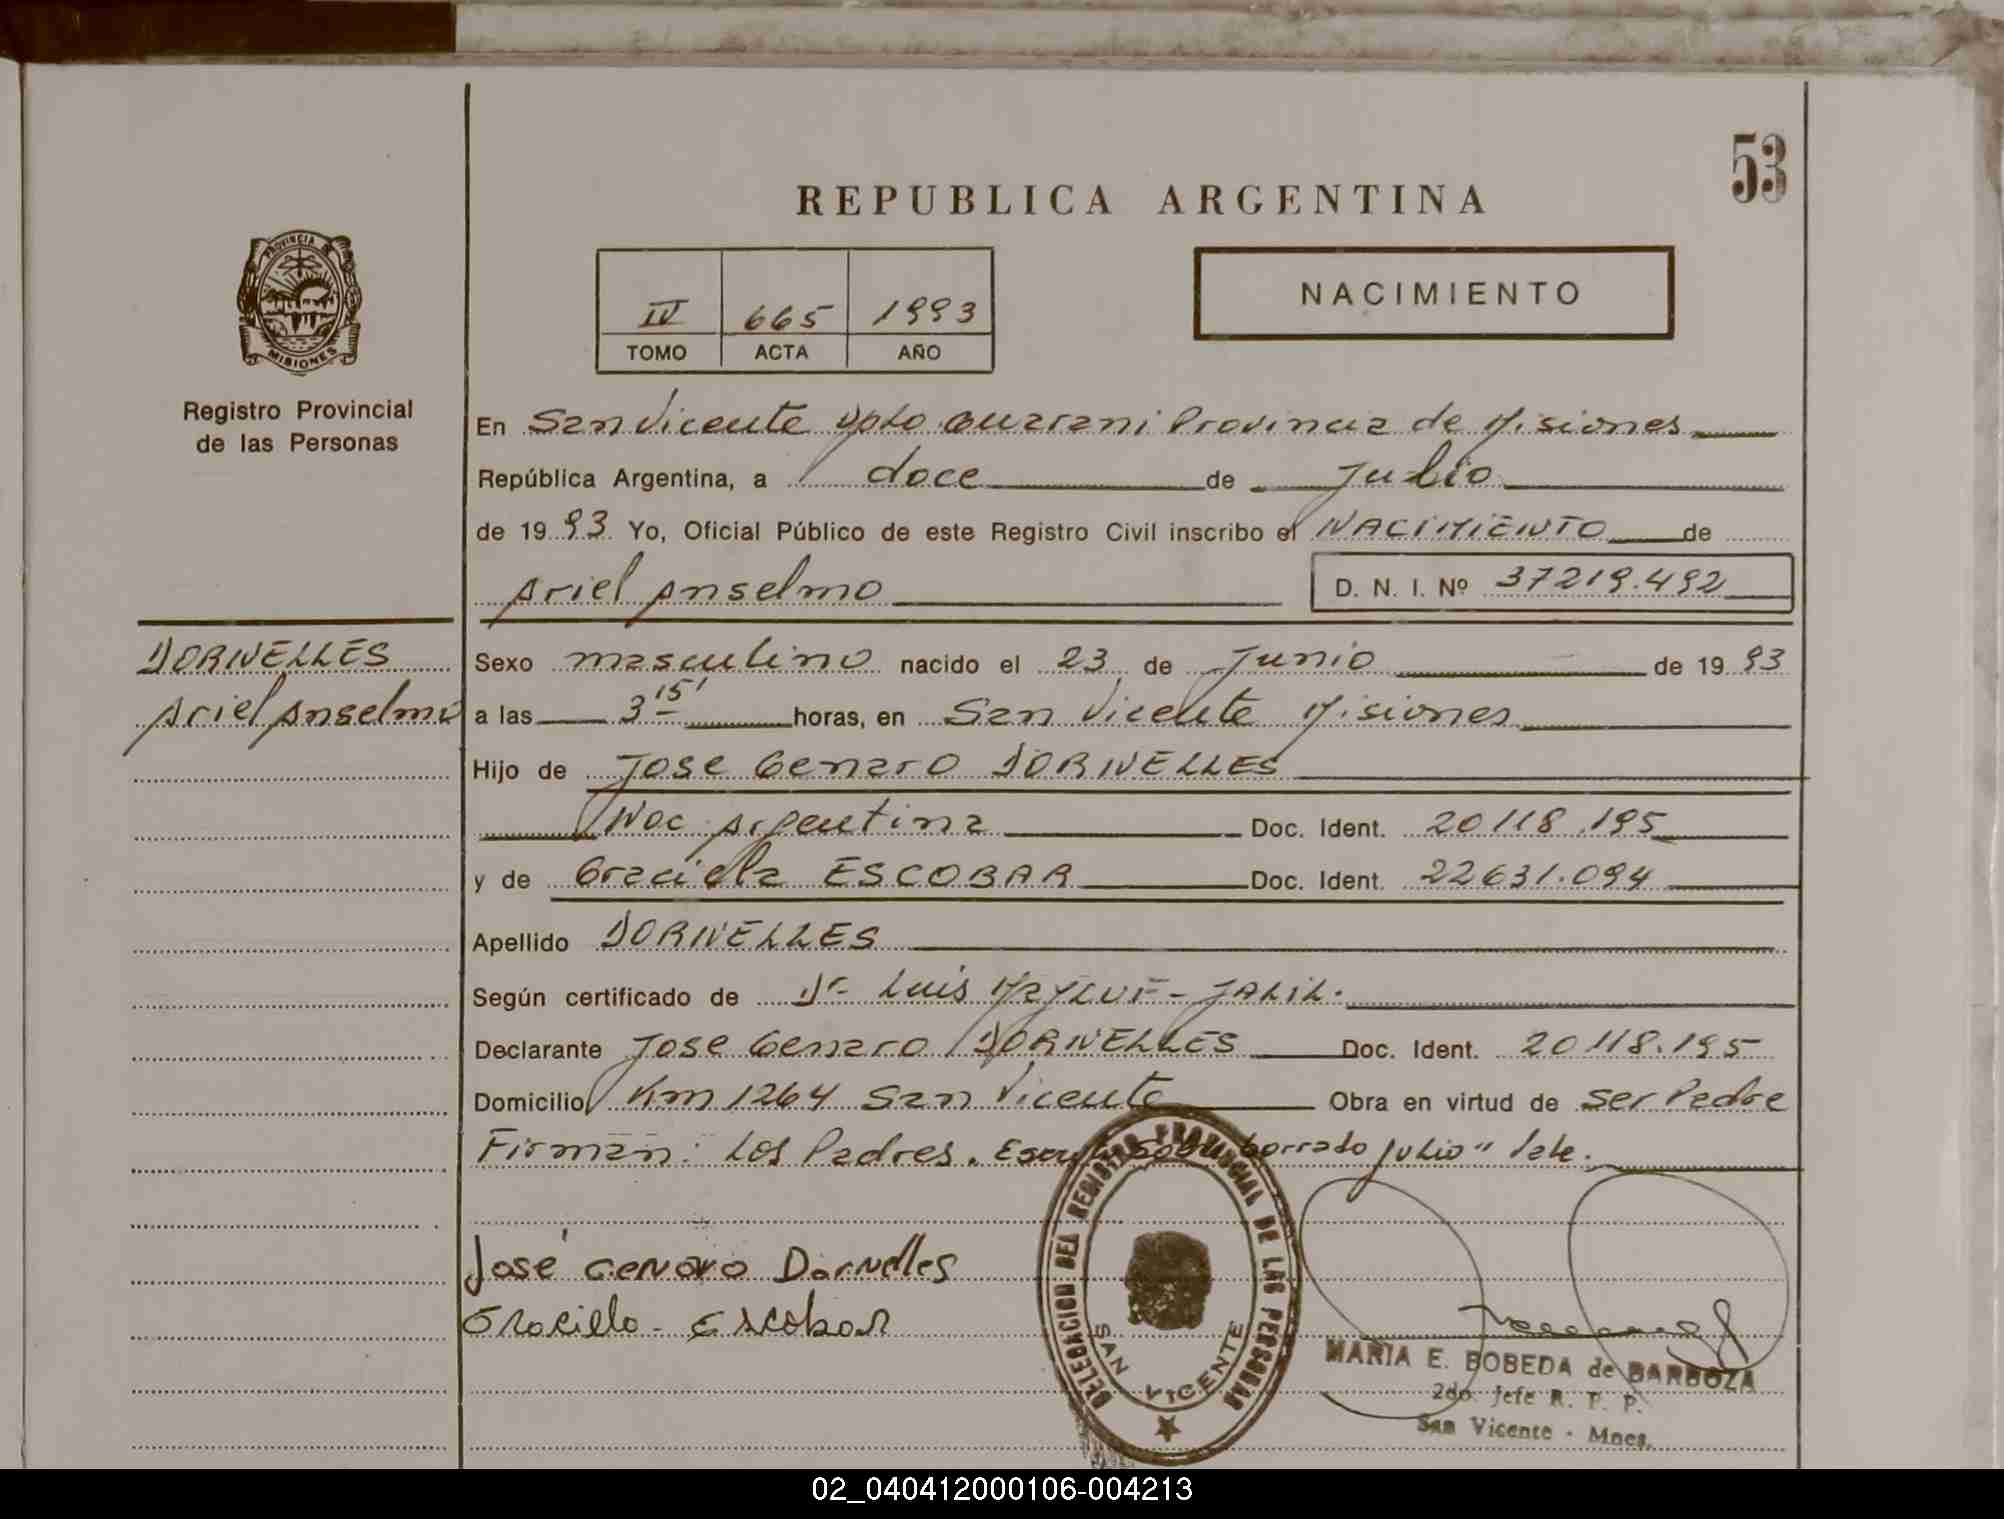 53
REPUBLICA ARGENTINA
PROVINCIA DE
MISIONES
Registro Provincial
de las Personas
IV 665 1993
TOMO ACTA AÑO
NACIMIENTO
En San Vicente Dpto Guarani Provincia de Misiones
República Argentina, a doce de Julio
de 1993 Yo, Oficial Público de este Registro Civil inscribo el NACIMIENTO de
Ariel Anselmo D. N. I. Nº 37219.492
DORNELLES
Ariel Anselmo
Sexo masculino nacido el 23 de Junio de 1993
a las 3 15' horas, en San Vicente Misiones
Hijo de Jose Genaro DORNELLES
Nac. Argentina Doc. Ident. 20118.195
y de Graciela ESCOBAR Doc. Ident. 22631.094
Apellido DORNELLES
Según certificado de Dr. Luis JALIL.
Declarante Jose Genaro DORNELLES Doc. Ident. 20118.195
Domicilio Km 1264 San Vicente Obra en virtud de ser Padre
Firman: Los Padres. sobre borrado Julio" Vale.
José Genaro Dornelles
Graciela - Escobar
DELEGACION DEL REGISTRO PROVINCIAL DE LAS PERSONAS
SAN VICENTE
MARIA E. BOBEDA de BARBOZA
2do. Jefe R. P. P.
San Vicente - Mnes.
02_040412000106-004213